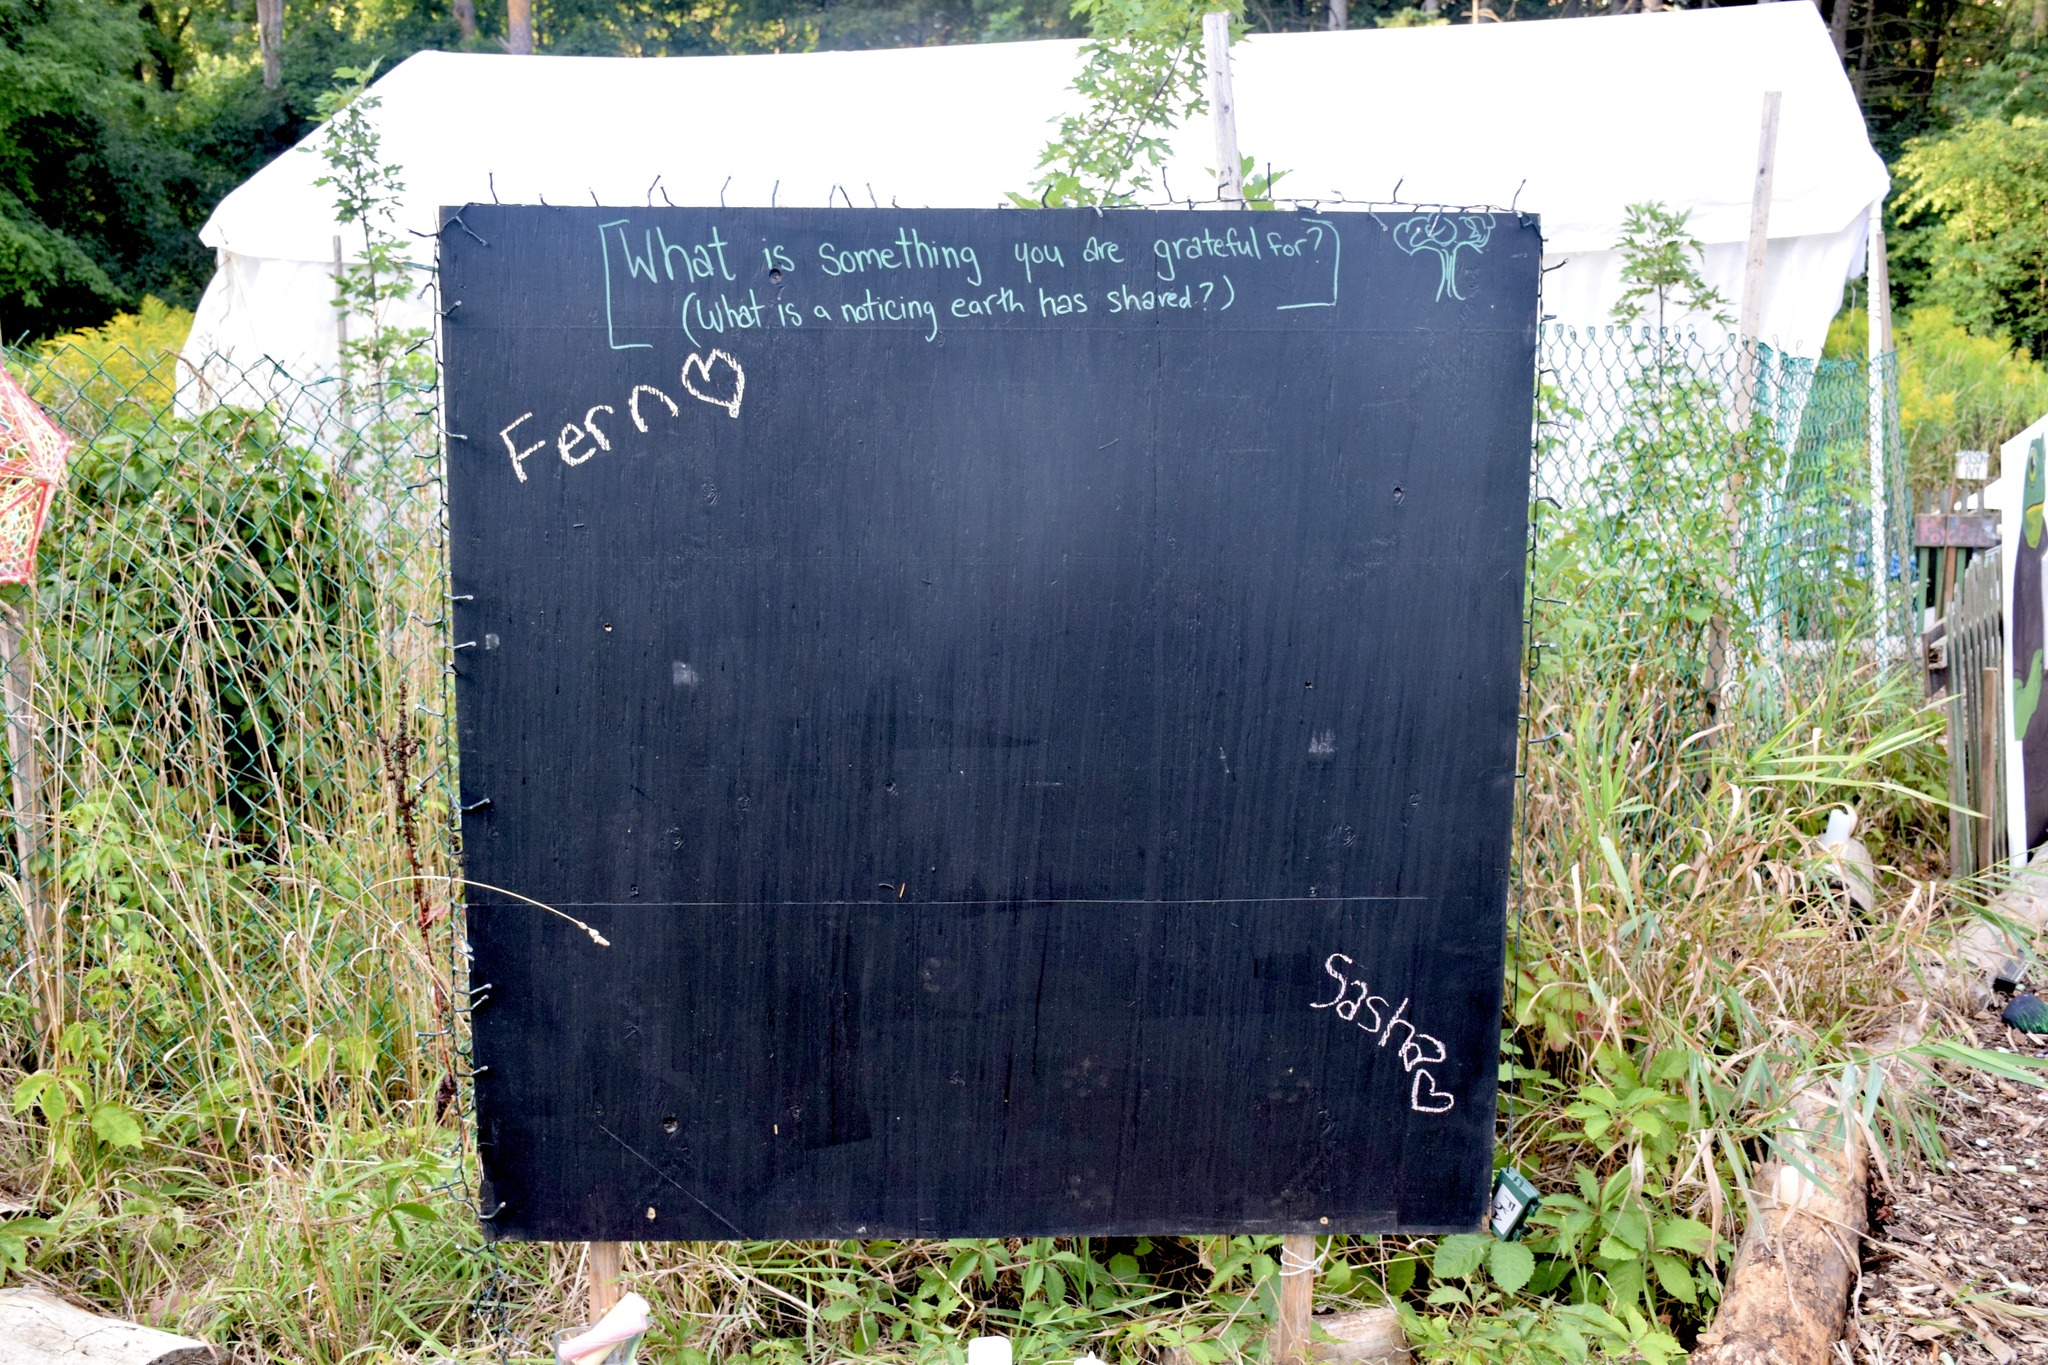 What is something you are grateful for?
(What is a noticing earth has shared?)
Fern
Sasha